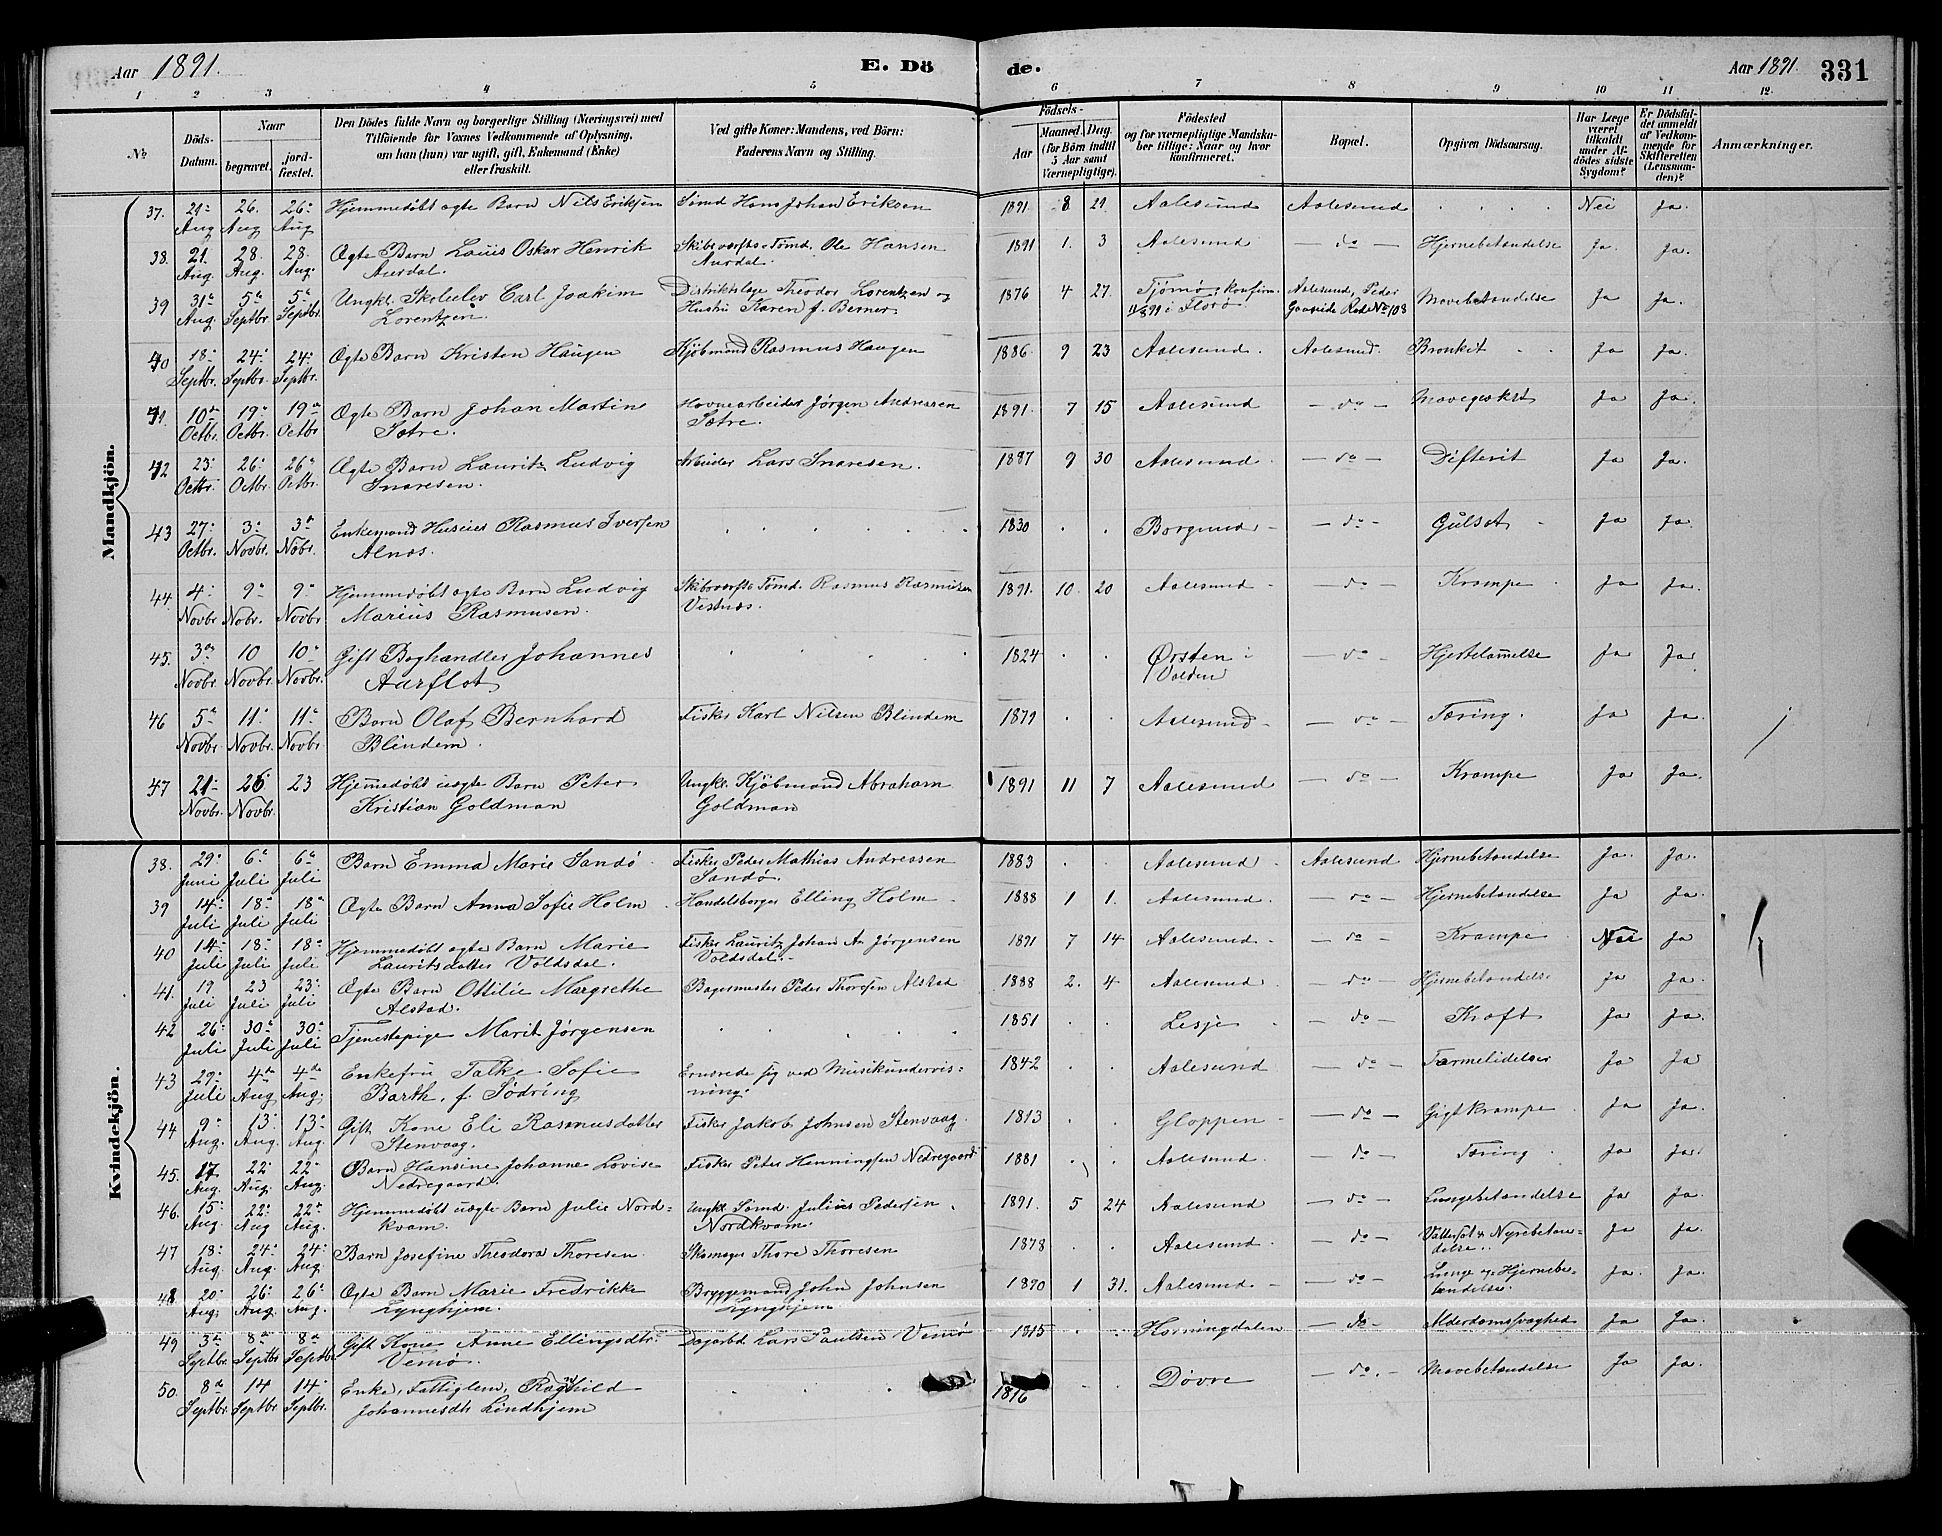 Aar 1891.
E. Dö
de.
Aar 1891.
331
1 2 3 4 5 6 7 8 9 10 11 12.
No
Döds-
Datum.
Naar
begravet.
jord-
fæstet.
Den Dödes fulde Navn og borgerlige Stilling (Næringsvei) med
Tilföiende for Voxnes Vedkommende af Oplysning,
om han (hun) var ugift, gift, Enkemand (Enke)
eller fraskilt.
Ved gifte Koner: Mandens, ved Börn:
Faderens Navn og Stilling.
Födsels-
Aar
Maaned. Dag.
(for Börn indtil
5 Aar samt
Værnepligtige).
Födested
og for værnepligtige Mandska-
ber tillige: Naar og hvor
konfirmeret.
Bopæl.
Opgiven Dödsaarsag.
Har Læge
været
tilkaldt
under Af-
dödes sidste
Sygdom?
Er Dödsfal-
det anmeldt
af Vedkom-
mende for
Skifteretten
(Lensman-
den)?
Anmærkninger.
Mandkjön.
37. 21 Aug 26. Aug 26 Aug Hjemmedøbt ægte Barn Nils Eriksen Sømd Hans Johan Eriksen 1891 8 21 Aalesund Aalesund Nei Ja.
38. 21. Aug. 28. Aug. 28. Aug. Ægte Barn Louis Oskar Henrik Skibsværfts-Tømd. Ole Hansen 1891 1. 3 Aalesund - do - Hjernebetændelse Ja. Ja.
Aurdal. Aurdal.
39 31 Aug. 5 Septbr. 5 Septbr. Ungkl. Skoleelev Carl Joakim Distriktslæge Theodor Lorentzen og 1876 4 27. Tjømø, Konfirm. Aalesund, Peder Mavebetændelse Ja Ja.
Lorentzen. Hustru Karen f. Berner. i Florø Gaaseide Rode No 108
40 18 Septbr. 24 Septbr. 24 Septbr. Ægte Barn Kristen Haugen Kjøbmand Rasmus Haugen 1886 9 23 Aalesund. Aalesund. Bronkit Ja Ja.
41. 10 Octbr. 19 Octbr. 19 Octbr Ægte Barn Johan Martin Havnearbeider Jørgen Andressen 1891. 7 15 Aalesund - do - Mavegeskst Ja Ja.
Sætre. Sætre.
42 23 Octbr. 26 Octbr. 26 Octbr. Ægte Barn Lauritz Ludvig Arbeider Lars Snaresen. 1887 9 30 Aalesund - do - Difterit Ja Ja.
Snaresen.
43 27 Octbr. 3 Novbr. 3 Nobr. Enkemand Huseier Rasmus Iversen 1830 Borgund - do - Gulsot Ja Ja.
Alnæs.
44. 4 Novbr. 9 Nobr. 9 Novbr. Hjemmedøbt ægte Barn Ludvig Skibsværfts Tømd. Rasmus Rasmusen 1891. 10. 20 Aalesund - do Krampe Ja Ja.
Marius Rasmusen. Vestnæs.
45. 3 Novbr. 10 Novbr. 10 Novbr. Gift Boghandler Johannes 1824 Ørsten i - do - Hjertelammelse Ja Ja
Aarflot Volden
46 5 Novbr. 11 Novbr. 11 Novbr. Barn Olaf Bernhard Fisker Karl Nilsen Blindem 1879 Aalesund - do - Tæring. Ja Ja.
Blindem.
47 21 Novbr. 26 Novbr. 23 Hjemmedøbt uægte Barn Peter Ungkr. Kjøbmand Abraham 1891 11 7 Aalesund - do - Krampe Ja Ja.
Kristian Goldman Goldman
Kvindekjön.
38. 29 Juni 6 Juli 6 Juli Barn Emma Marie Sandø Fisker Peder Mathias Andressen 1883 Aalesund. Aalesund Hjernebetændelse Ja. Ja.
Sandø.
39 14 Juli 18 Juli 18 Juli Ægte Barn Anna Sofie Holm Handelsborger Elling Holm 1888 1 1. Aalesund. - do - Hjernebetændelse Ja Ja.
40 14 Juli 18 Juli 18 Juli Hjemmedøbt ægte Barn Marie Fisker Lauritz Johan A. Jørgensen 1891 7 14 Aalesund - do Krampe Nei Ja
Lauritsdatter Voldsdal. Voldsdal.
41. 19 Juli 23 Juli 23 Juli Ægte Barn Ottilie Margrethe Bagermester Peder Thoresen Alstad 1888 2. 4 Aalesund - do - Hjernebetændelse Ja Ja.
Alstad.
42 26 Juli 30 Juli 30 Juli Tjenestepige Marit Jørgensen 1851 Lesje - do - Kræft Ja Ja.
43 29 Juli 4 Aug 4 Aug. Enkefru Talke Sofie Ernærede sig ved Musikundervis- 1842 Aalesund - do Tarmelidelser Ja Ja
Barth, f. Sødring ning.
44 9 Aug. 13 Aug. 13 Aug. Gift Kone Eli Rasmusdatter Fisker Jakob Johnsen Stenvaag. 1813 Gloppen - do - Gigtkrampe Ja Ja
Stenvaag.
45. 17 Aug. 22 Aug. 22 Aug. Barn Hansine Johanne Lovise Fisker Peter Henningsen Nedregaard 1881 Aalesund. - do - Tæring Ja Ja.
Nedregaard.
46. 15 Aug. 22 Aug 22 Aug. Hjemmedøbt uægte Barn Julie Nord- Ungkl. Sømd. Julius Pedersen 1891. 5 24 Aalesund - do - Lungebetændelse Ja Ja.
kvam. Nordkvam.
47 18 Aug. 24 Aug. 24 Aug. Barn Josefine Theodora Thoresen Skomager Thore Thoresen 1878 Aalesund. - do - Vattersot & Nyrebetæn- Ja Ja.
delse.
48 20 Aug. 26 Aug. 26 Aug. Ægte Barn Marie Fredrikke Bryggemand John Johnsen 1890 1 31. Aalesund - do - Lunge og Hjernebe- Ja. Ja.
Lynghjem. Lynghjem tændelse.
49 3 Septbr 8 Septbr 8 Septbr Gift Kone Anne Ellingsdtr. Dagarbd. Lars Paulsen Vemø 1815 Horningdalen - do - Alderdomssvaghed Ja Ja.
Vemø.
50. 8 Septbr. 14 Septbr. 14 Septbr. Enke, Fattiglem, Ragnhild 1816 Dovre - do. - Mavebetændelse Ja Ja.
Johannesdtr Lindhjem